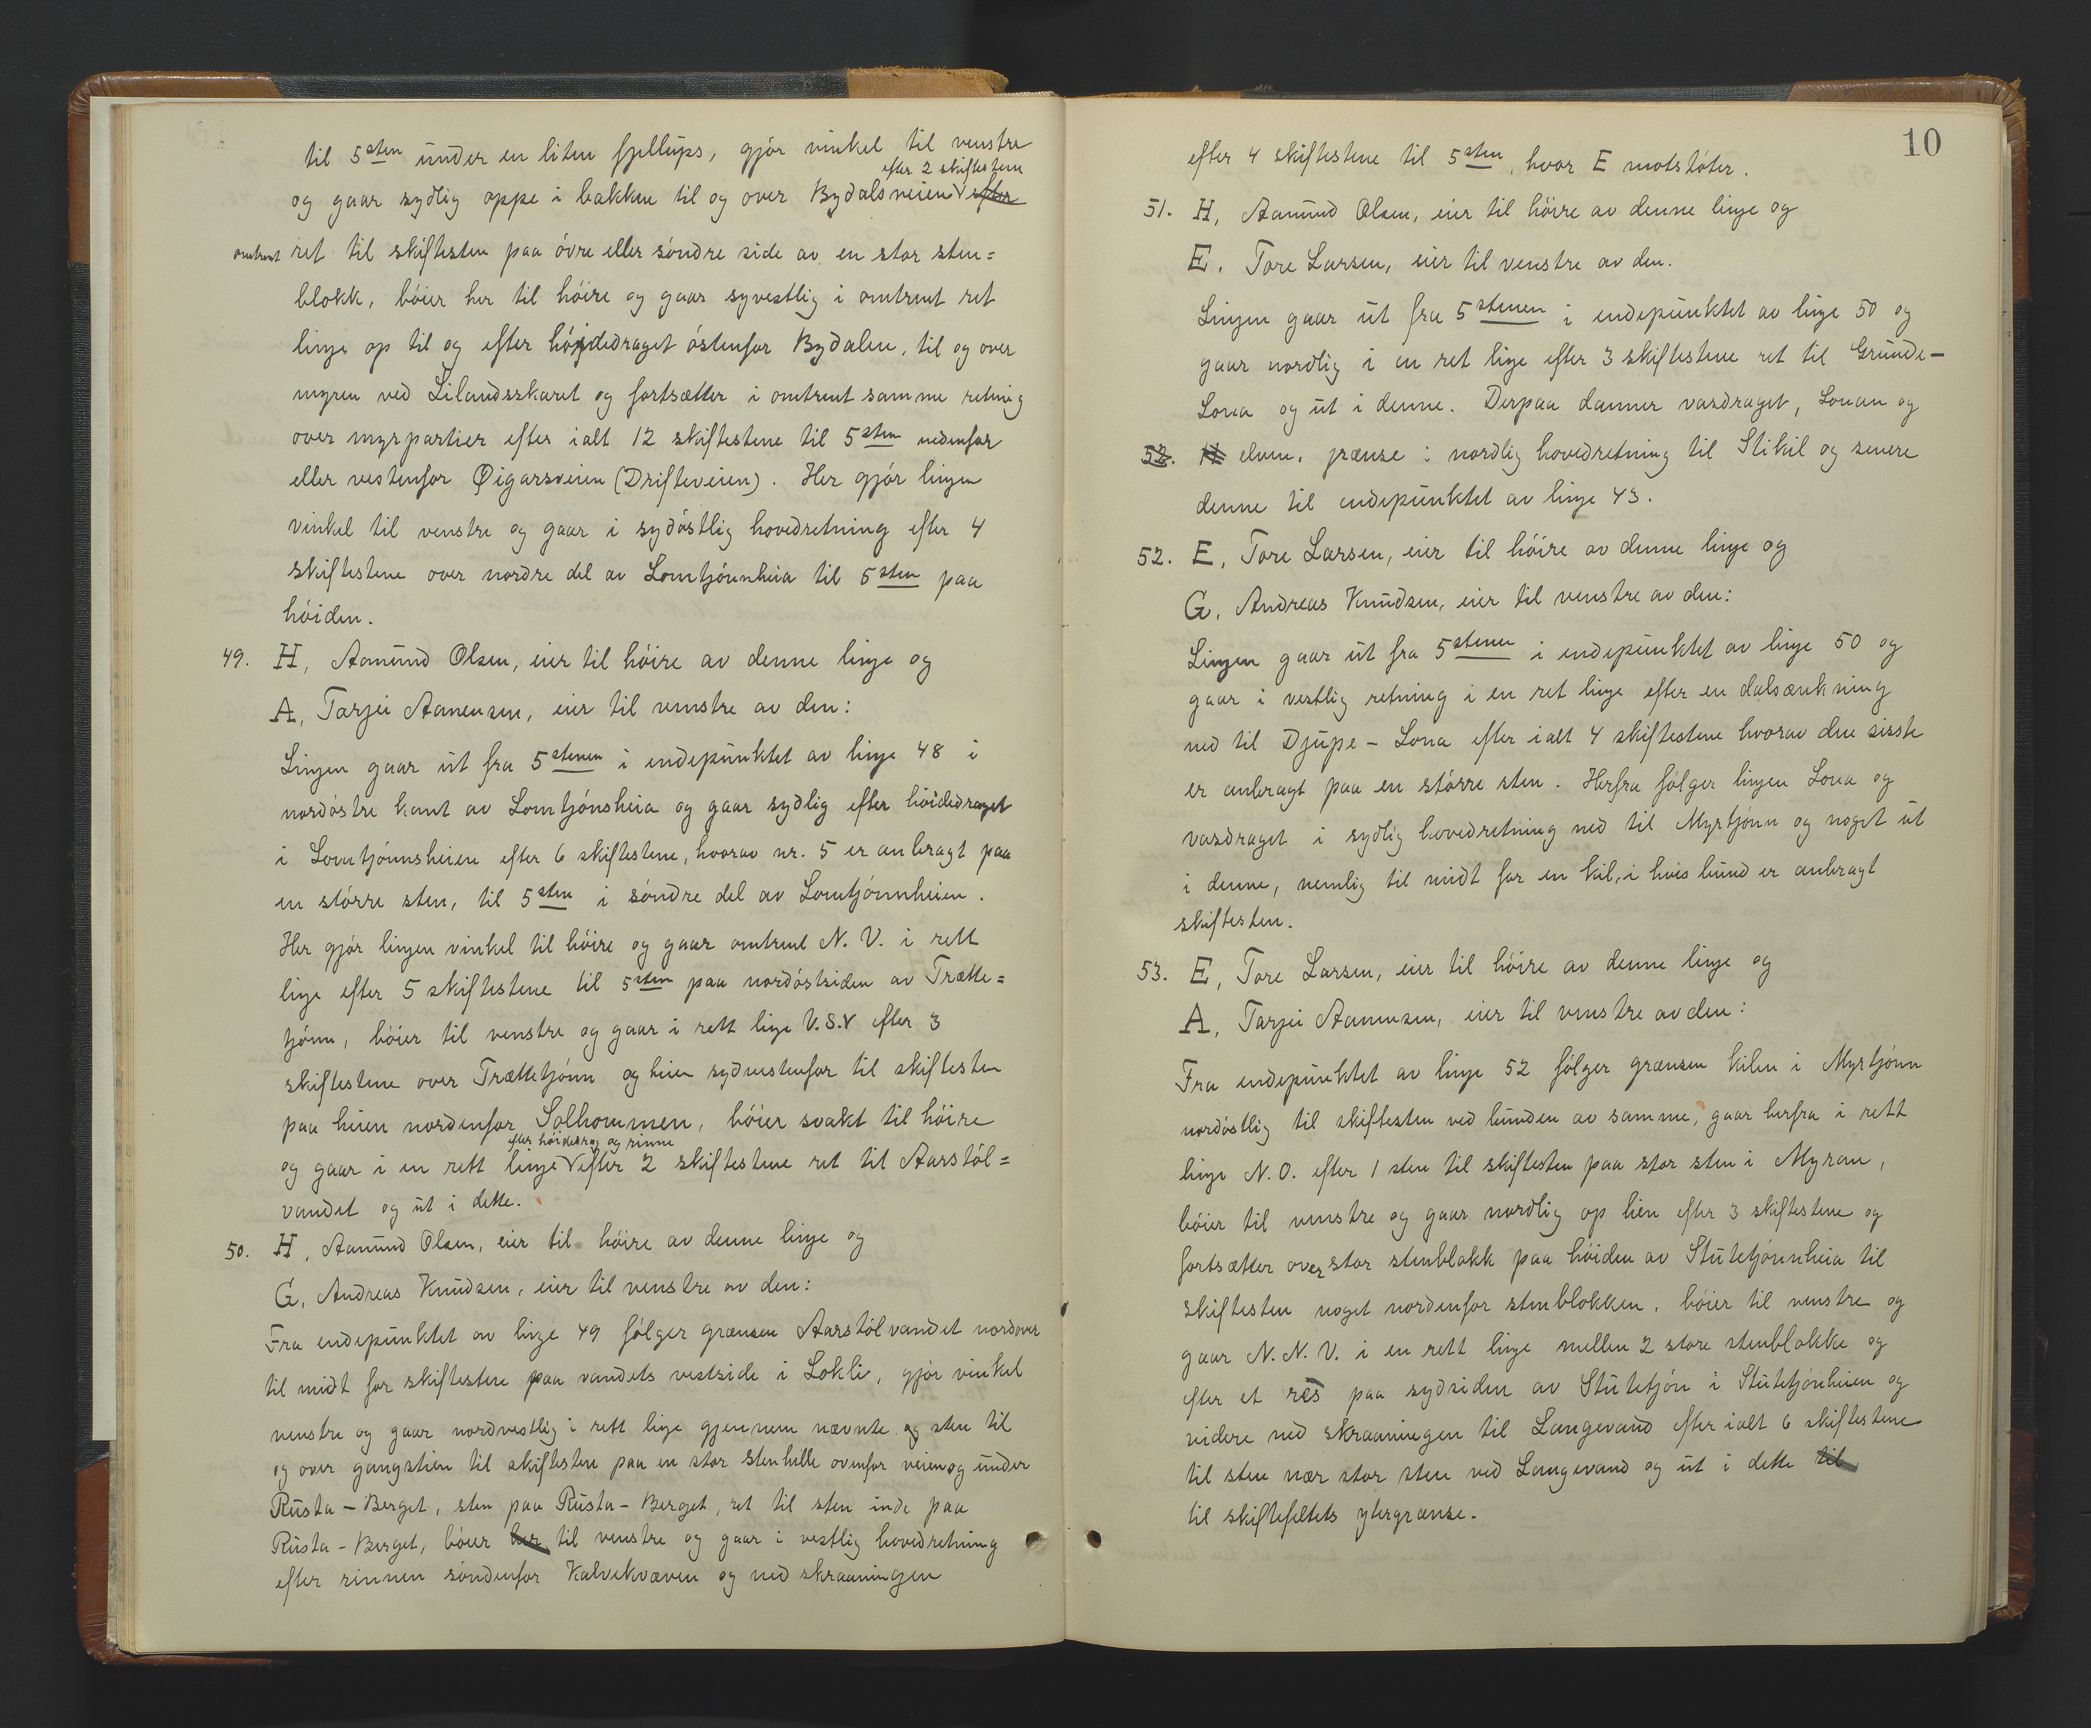 til 5sten under en liten fjellups, gjör vinkel til venstre
efter 2 skiftestene
og gaar sydlig oppe i bakken til og over Bydalsveien efter
omtrent ret til skiftesten paa övre eller söndre side av en stor sten=
blokk, böier her til höire og gaar syvestlig i omtrent ret
linje op til og efter höidedraget östenfor Bydalen, til og over
myren ved Lilandsskaret og fortsætter i omtrent samme retning
over myrpartier efter ialt 12 skiftestene til 5sten nedenfor
eller vestenfor Øigarsveien (Drifteveien). Her gjör linjen
vinkel til venstre og gaar i sydöstlig hovedretning efter 4
skiftestene over nordre del av Lomtjönnheia til 5sten paa
höiden.
49. H, Aamund Olsen, eier til höire av denne linje og
A, Tarjei Aanensen, eier til venstre av den:
Linjen gaar ut fra 5stenen i endepunktet av linje 48 i
nordöstre kant av Lomtjönsheia og gaar sydlig efter höidedraget
i Lomtjönnsheien efter 6 skiftestene, hvorav nr. 5 er anbragt paa
en större sten, til 5sten i söndre del av Lomtjönnheien.
Her gjör linjen vinkel til höire og gaar omtrent N. V. i rett
linje efter 5 skiftestene til 5sten paa nordöstsiden av Trætte=
tjönn, böier til venstre og gaar i rett linje V.S.V efter 3
skiftestene over Trættetjönn og heien sydvestenfor til skiftesten
paa heien nordenfor Solhommen, böier svakt til höire
efter höidedrag og rinne
og gaar i en rett linje efter 2 skiftestene ret til Aarstöl=
vandet og ut i dette.
50. H, Aamund Olsen, eier til höire av denne linje og
G, Andreas Knudsen, eier til venstre av den:
Fra endepunktet av linje 49 fölger grænsen Aarstölvandet nordover
til midt for skiftestene paa vandets vestside i Lokli, gjör vinkel
venstre og gaar nordvestlig i rett linje gjennem nævnte og sten til
og over gangstien til skiftestene paa en stor stenhelle ovenfor veien og under
Rusta-Berget, sten paa Rusta-Berget, ret til sten inde paa
Rusta-Berget, böier her til venstre og gaar i vestlig hovedretning
efter rinnen söndenfor Kalvekvæven og ned skraaningen
10
efter 4 skiftestene til 5sten, hvor E motstöter.
51. H, Aamund Olsen, eier til höire av denne linje og
E, Tore Larsen, eier til venstre av den.
Linjen gaar ut fra 5stenen i endepunktet av linje 50 og
gaar nordlig i en ret linje efter 3 skiftestene ret til Grunde-
Lona og ut i denne. Derpaa danner vasdraget, Lonan og
52. H elven, grænse i nordlig hovedretning til Stikil og senere
denne til endepunktet av linje 43.
52. E, Tore Larsen, eier til höire av denne linje og
G, Andreas Knudsen, eier til venstre av den:
Linjen gaar ut fra 5stenen i endepunktet av linje 50 og
gaar i vestlig retning i en ret linje efter en dalsænkning
ned til Djupe-Lona efter ialt 4 skiftestene hvorav den sisste
er anbragt paa en större sten. Herfra fölger linjen Lona og
vasdraget i sydlig hovedretning ned til Myrtjönn og noget ut
i denne, nemlig til midt for en kil, i hvis bund er anbragt
skiftesten.
53. E, Tore Larsen, eier til höire av denne linje og
A, Tarjei Aanensen, eier til venstre av den:
Fra endepunktet av linje 52 fölger grænsen kilen i Myrtjönn
nordöstlig til skiftesten ved bunden av samme, gaar herfra i rett
linje N.O. efter 1 sten til skiftesten paa stor sten i Myran,
böier til venstre og gaar nordlig op lien efter 3 skiftestene og
fortsætter over stor stenblokk paa höiden av Stutetjönnheia til
skiftesten noget nordenfor stenblokken, böier til venstre og
gaar N. N. V. i en rett linje mellen 2 store stenblokke og
efter et res paa sydsiden av Stutetjön i Stutetjönheien og
videre ned skraaningen til Langevand efter ialt 6 skiftestene
til sten nær stor sten ved Langevand og ut i dette til
til skiftefeltets ytergrænse.